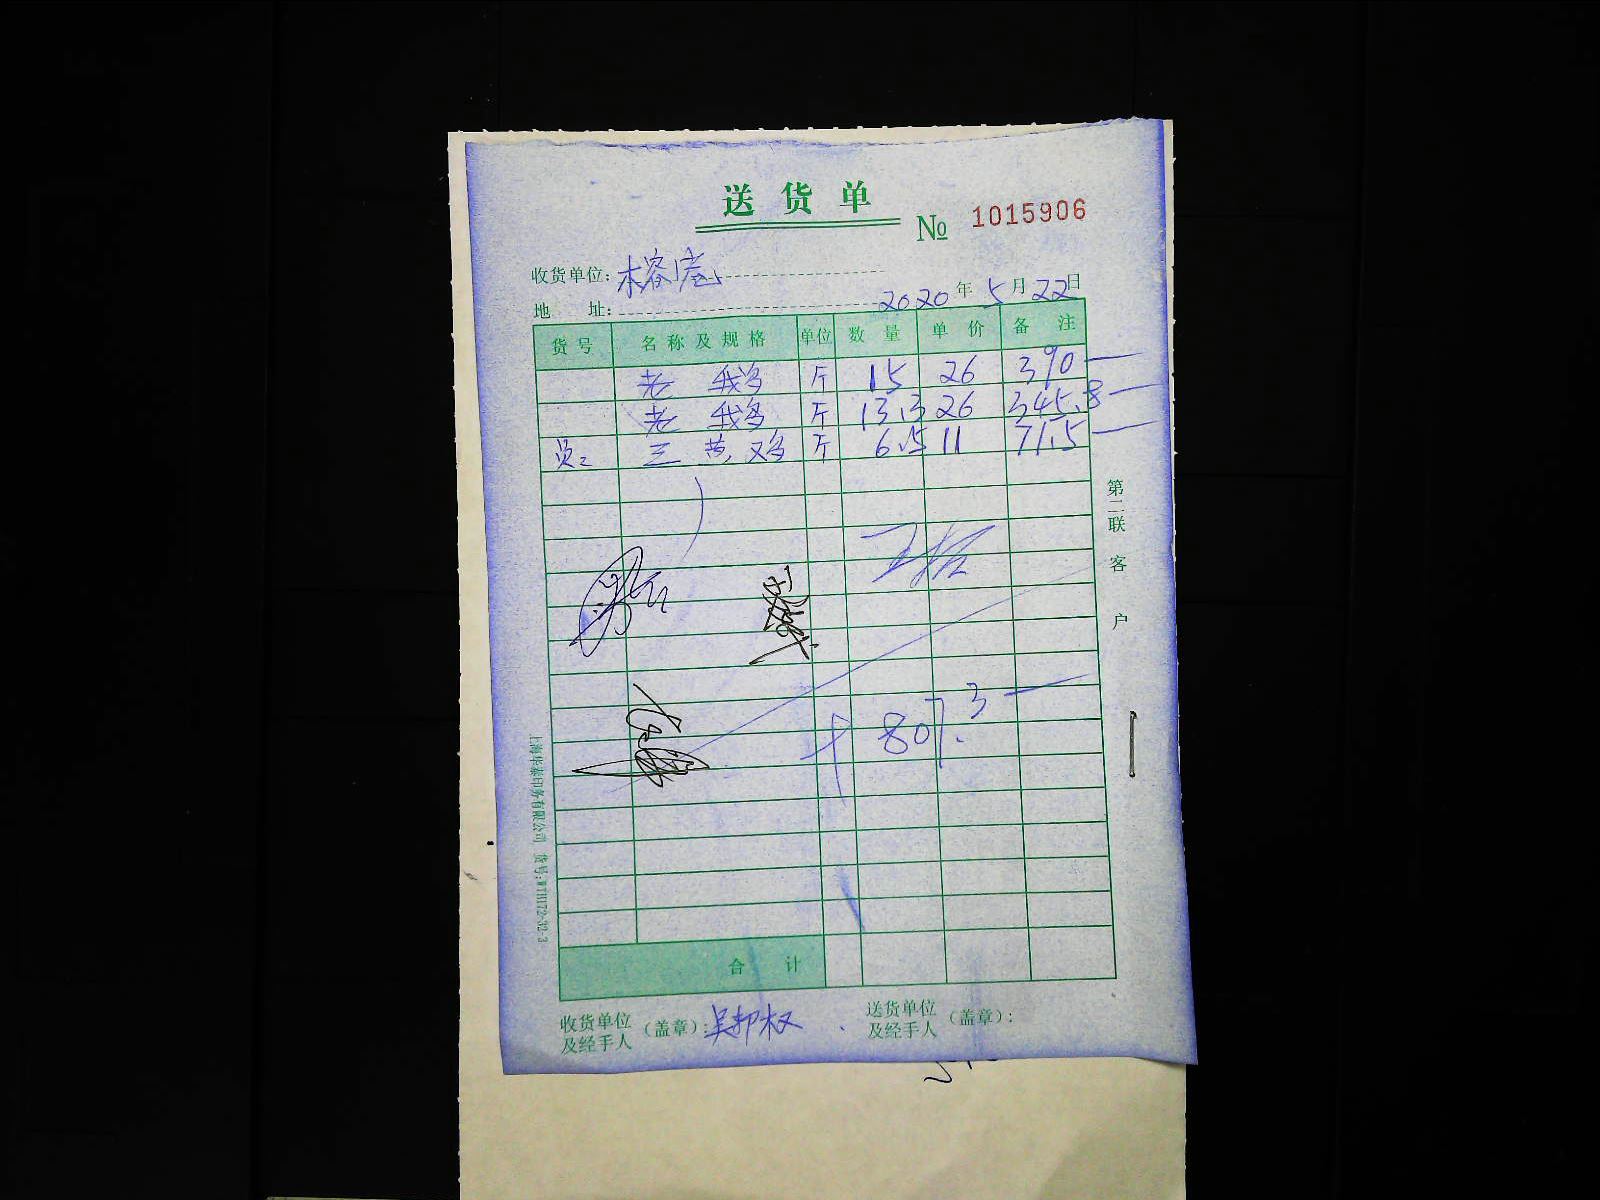 送货单
№ 1015906
收货单位: 木容庭
地 址:
2020年5月22日
货号 名称及规格 单位 数量 单价 备注
老 鹅 斤 15 26 390
老 鹅 斤 13.3 26 345.8
员: 三黄鸡 斤 6.5 11 71.5
807.3
合 计
收货单位及经手人 (盖章): 吴邦权
送货单位及经手人 (盖章):
第二联 客户
上海华泰印务有限公司 货号:WTH172-32-3